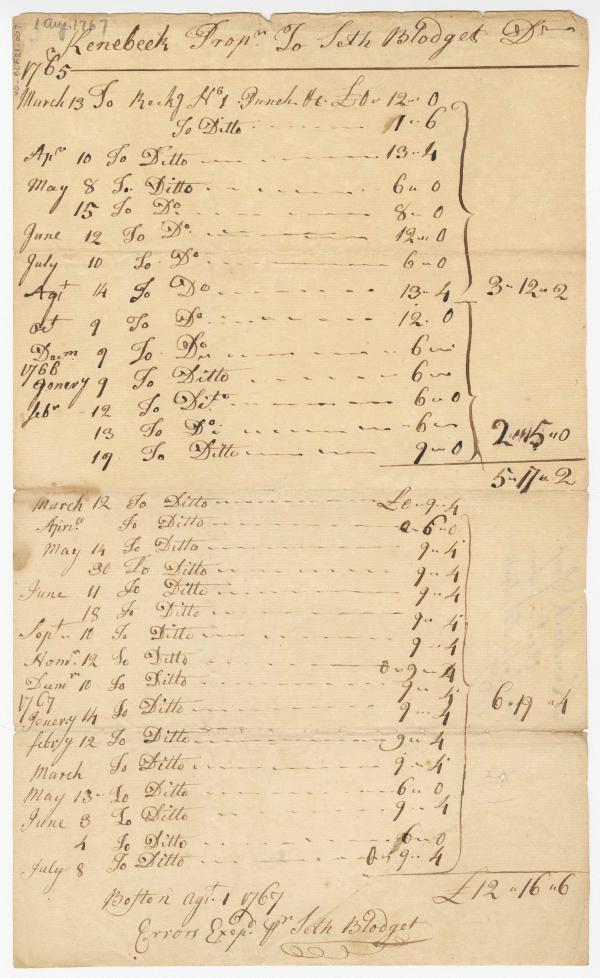 1 Aug. 1767
Kenebeck Propr To Seth Blodget Dr
1765
March 13 To Reckg No 1 Punch &c £0 " 12 " 0
To Ditto 1 " 6
Apr 10 To Ditto 13 " 4
May 8 To Ditto 6 " 0
15 To Do 8 " 0
June 12 To Do 12 " 0
July 10 To Do 6 " 0
Agt 14 To Do 13 " 4 3 " 12 " 2
oct 9 To Do 12 " 0
Decm 9 To Do 6 "
1766
Jonery 9 To Ditto 6 "
febr 12 To Dito 6 " 0
13 To Do 6 " 2 " 5 " 0
19 To Ditto 9 " 0
5 " 17 " 2
March 12 To Ditto £0 " 9 " 4
To Ditto 0 " 6 " 0
May 14 To Ditto 9 " 4
30 To Ditto 9 " 4
June 11 To Ditto 9 " 4
18 To Ditto 9 " 4
Sept 10 To Ditto 9 " 4
Novr 12 To Ditto 0 " 9 " 4
Decmr 10 To Ditto 9 " 4
1767 6 " 19 " 4
Jonery 14 To Ditto 9 " 4
febry 12 To Ditto 9 " 4
March To Ditto 9 " 4
May 13 To Ditto 6 " 0
June 3 To Ditto 9 " 4
4 To Ditto 6 " 0
July 8 To Ditto 0 " 9 " 4
£12 " 16 " 6
Boston agt 1 1767
Errors Exepd pr Seth Blodget